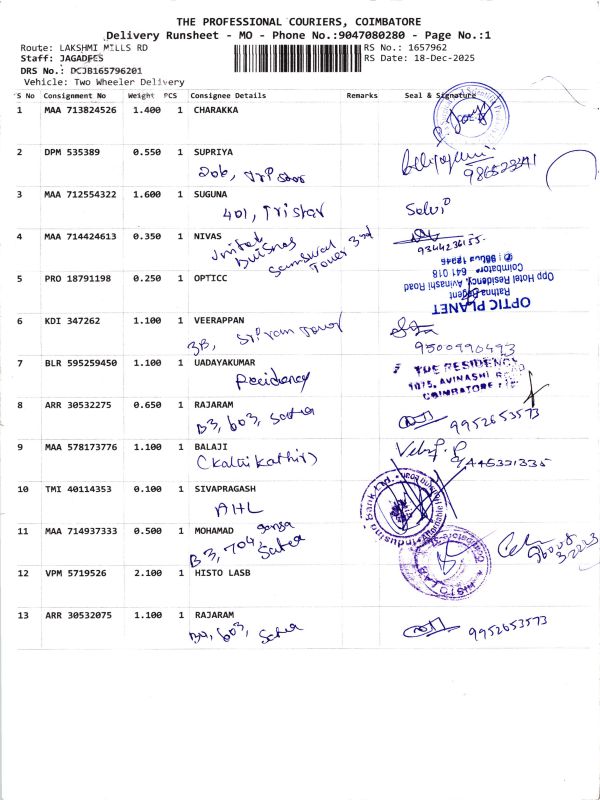 THE PROFESSIONAL COURIERS, COIMBATORE
Delivery Runsheet - MO - Phone No.:9047080280 - Page No.:1
Route: LAKSHMI MILLS RD
RS No.: 1657962
Staff: JAGADEES
RS Date: 18-Dec-2025
DRS No.: DCJB165796201
Vehicle: Two Wheeler Delivery
S No Consignment No Weight PCS Consignee Details Remarks Seal & Signature
1 MAA 713824526 1.400 1 CHARAKKA
2 DPM 535389 0.550 1 SUPRIYA
206,
3 MAA 712554322 1.600 1 SUGUNA
401, Tristar
Selvi
4 MAA 714424613 0.350 1 NIVAS
United
Tower 3rd
9344236155
5 PRO 18791198 0.250 1 OPTICC
OPTIC PLANET
Rathna Regent
Opp Hotel Residency, Avinashi Road
Coimbatore 641 018
6 KDI 347262 1.100 1 VEERAPPAN
3B, Sriram Tower
9500990493
7 BLR 595259450 1.100 1 UADAYAKUMAR
Recidency
THE RESIDENCY
1075, AVINASHI ROAD
COIMBATORE
8 ARR 30532275 0.650 1 RAJARAM
B3, 603,
9952653573
9 MAA 578173776 1.100 1 BALAJI
(Kalaikathir)
10 TMI 40114353 0.100 1 SIVAPRAGASH
AHL
IndusInd Bank Ltd.
11 MAA 714937333 0.500 1 MOHAMAD
B3, 704
12 VPM 5719526 2.100 1 HISTO LASB
HISTO LAB
13 ARR 30532075 1.100 1 RAJARAM
603,
9952653573